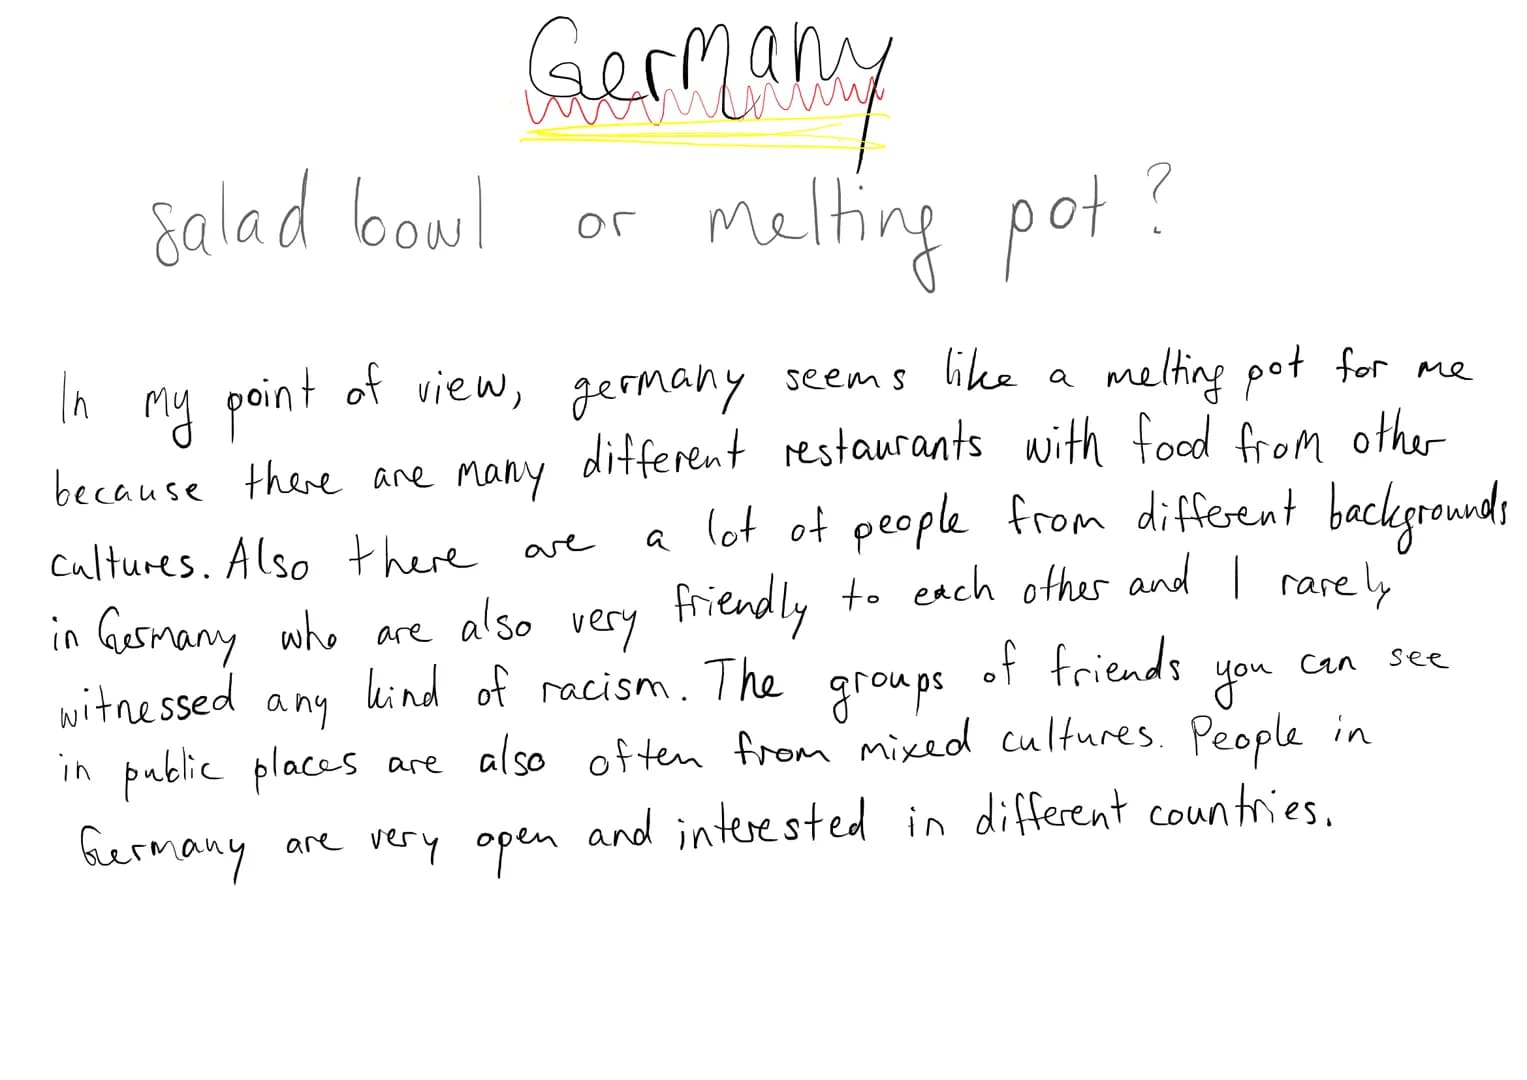 Germany
salad bowl or melting pot?
In my point of view, germany seems like a melting pot for me
because there are many different restaurants with food from other
cultures. Also there are a lot of people from different backgrounds
in Germany who are also very friendly to each other and I rarely
witnessed any kind of racism. The groups of friends you can see
in public places are also often from mixed cultures. People in
Germany are very open and interested in different countries.